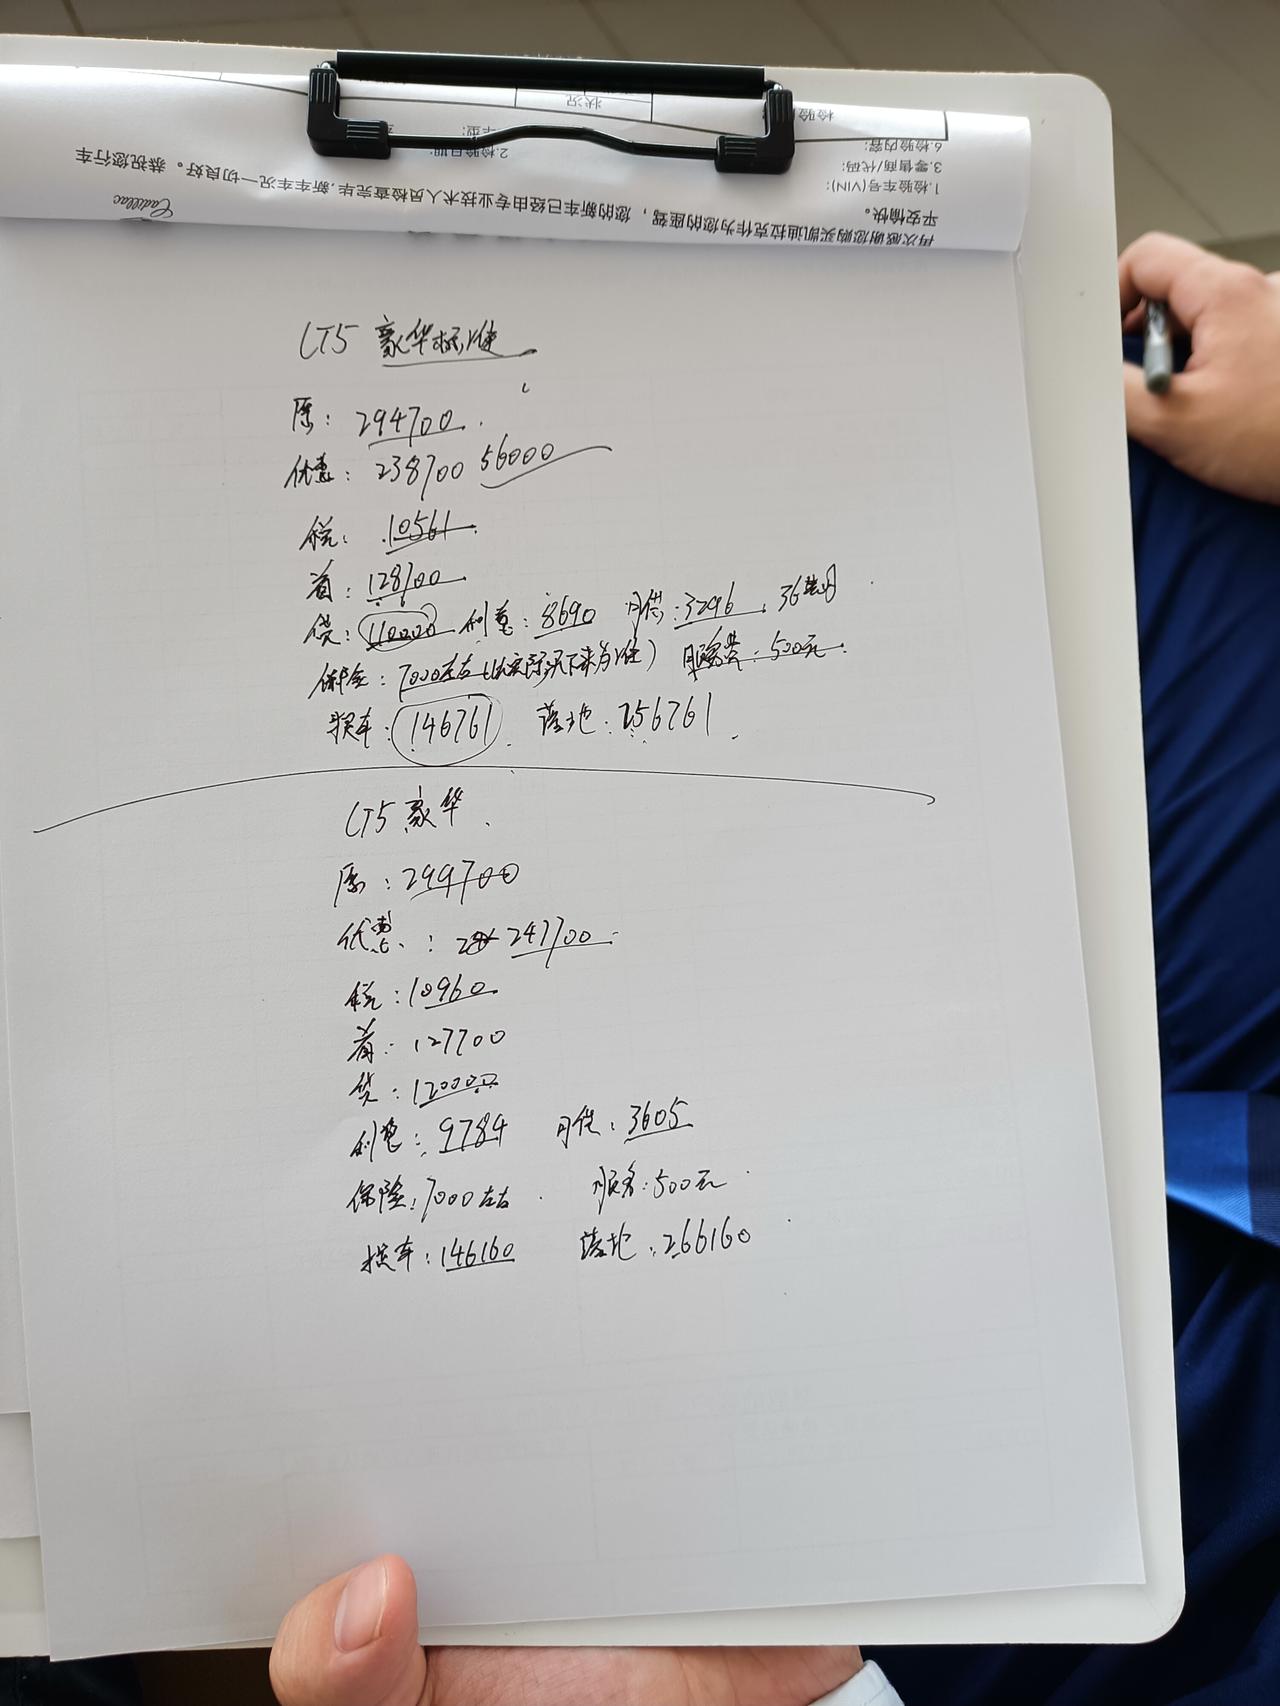 状况
检验
车型:
6.检验内容:
2.检验日期:
3.零售商/代码:
1.检验车号(VIN):
您的新车已经由专业技术人员检查完毕,新车车况一切良好。恭祝您行车
平安愉快。
再次感谢您购买凯迪拉克作为您的座驾,
Cadillac
CT5 豪华标准
原: 294700.
优惠: 238700 56000
税: 10561
首: 128700
贷: 110000 利息: 8690 月供: 3296, 36期
保险: 7000左右(以实际买下来为准) 服务费: 500元.
提车: 146761 落地: 256761
CT5 豪华
原: 299700
优惠: 247700
税: 10960
首: 127700
贷: 120000
利息: 9784 月供: 3605
保险: 7000左右 服务: 500元
提车: 146160 落地: 266160